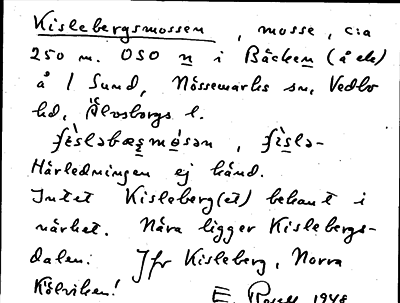 Kislebergsmossen, mosse, c:a
250 m. OSO n i Bäcken (å ek)
å / Sund, Nössemarks sn, Vedbo
hd, Älvsborgs l.
Härledningen ej känd.
Intet Kisleberg(et) bekant i
närhet. Nära ligger Kislebergs-
dalen. Jfr Kisleberg, Norra
Kölviken!
E. 1948